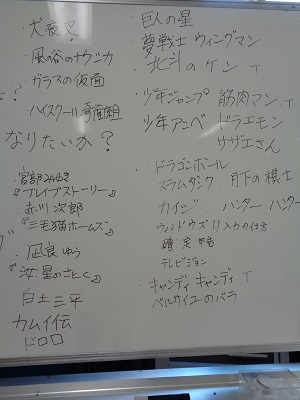 ・犬夜叉
・風の谷のナウシカ
・ガラスの仮面
?
・ハイスクール奇面組
なりたいか?
・宮部みゆき
『ブレイブストーリー』
・赤川次郎
『三毛猫ホームズ』
・凪良ゆう
『汝、星のごとく』
白土三平
カムイ伝
ドロロ
・巨人の星
夢戦士ウィングマン
・北斗のケン T
・少年ジャンプ 筋肉マン T
少年アシベ ドラエモン
サザエさん
・ドラゴンボール
スラムダンク 月下の棋士
カイジ ハンターハンター
ウィンドウズ入力の仕方
確定申告
テレビジョン
・キャンディキャンディ T
ベルサイユのバラ